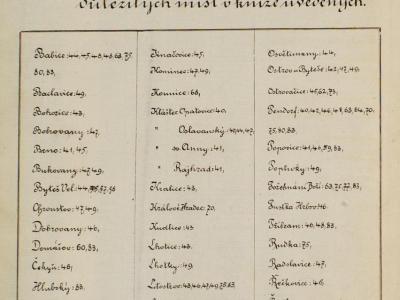 důležitých míst v knize uvedených.
Babice: 44, 45, 48, 63, 75.
80, 83,
Baclavice: 49,
Bohořice: 43,
Bohrovany: 47,
Brno: 41, 45,
Bukovany: 47, 49,
Byteš Vel: 44,
Chroustov: 47, 49,
Dobrovany: 46,
Domášov: 60, 83,
Čekyň: 46,
Hlubočky: 83,
Jinačovice: 45,
Komínec: 47, 49,
Kounice: 68,
Klášter Opatovice: 40,
" Oslavanský: 40, 44, 47,
" sv. Anny: 41,
" Rajhrad: 41,
Kratice: 43,
Králové Hradec: 70,
Kudlice: 43
Lhotice: 43,
Lhotky: 49,
Litostrov: 43, 46, 47, 49, 78, 83.
Osvětimany: 44,
Ostrov u Byteše: 42, 47, 49,
Ostrovačice: 45, 62, 73,
Pendorf: 40, 42, 46, 48, 63, 64, 70,
75, 80, 83
Popovice: 41, 46, 59, 83,
Poplůvky: 49,
Požehnání Boží: 63, 75, 77, 83,
Pustka Hrbov: 46.
Příbram: 46, 48, 83,
Rudka: 75,
Radslavice: 47,
Řečkovice: 46,